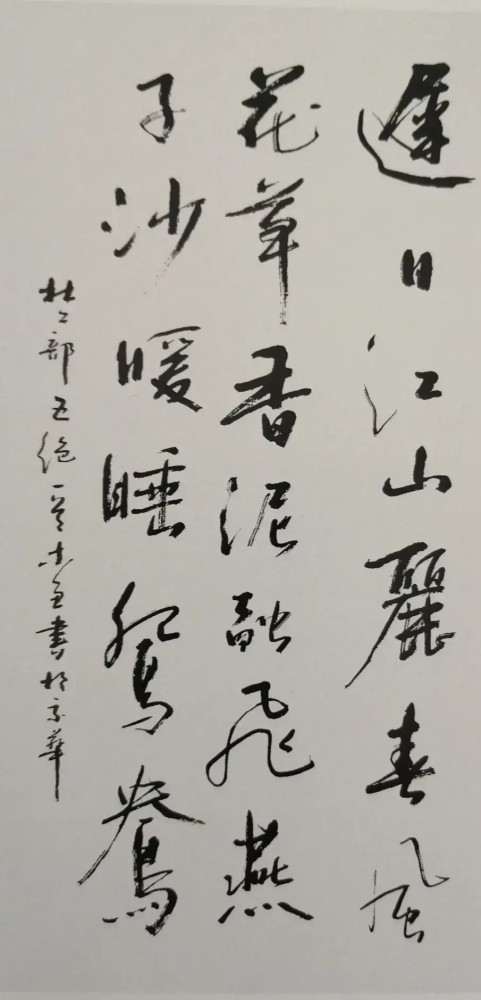 遲日江山麗春風
花草香泥融飛燕
子沙暖睡鴛鴦
杜工部五绝一首 書於京華